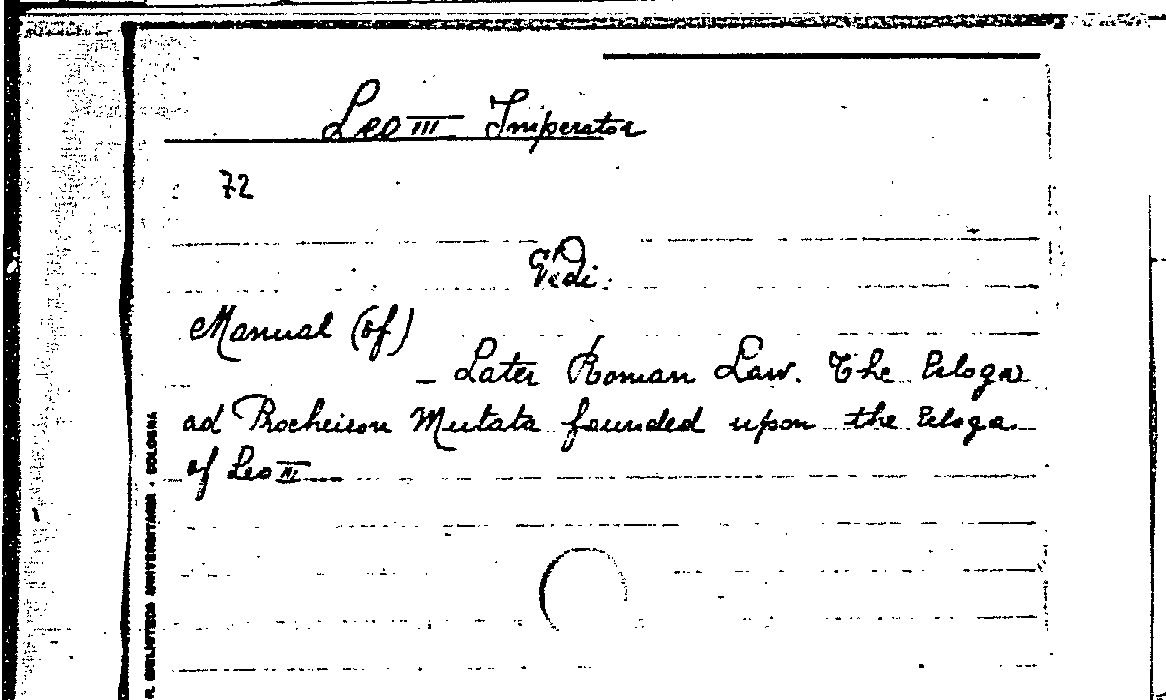 Leo III Imperator
72
Vedi:
Manual (of)
- Later Roman Law. The Ecloga
ad Procheiron Mutata founded upon the Ecloga
of Leo III
R. BIBLIOTECA UNIVERSITARIA - BOLOGNA